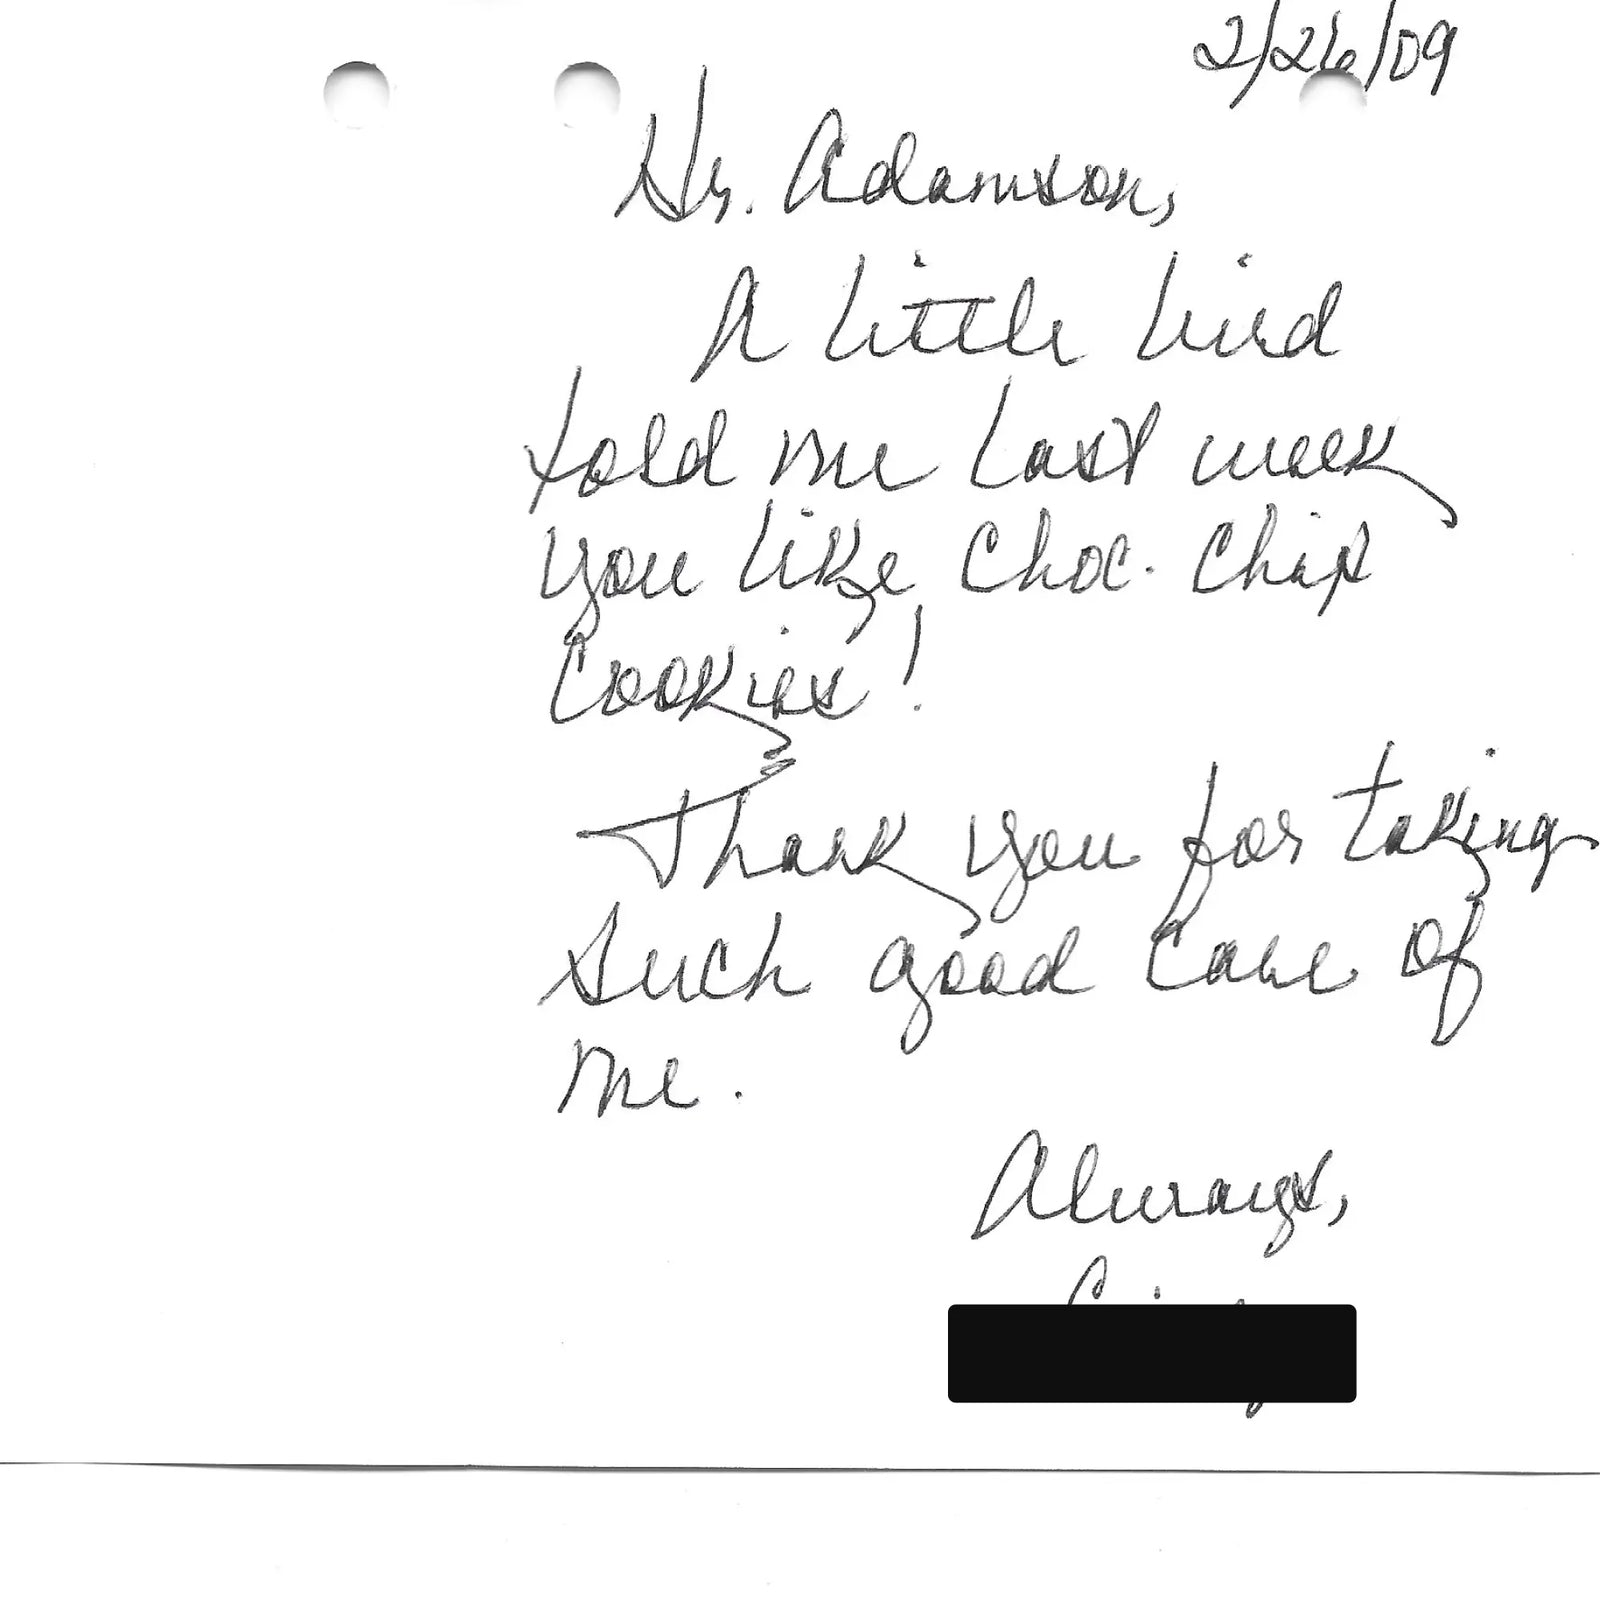 2/26/09
Dr. Adamson,
A little bird
told me last week
you like Choc. Chip
Cookies!
Thank you for taking
such good care of
me.
Always,